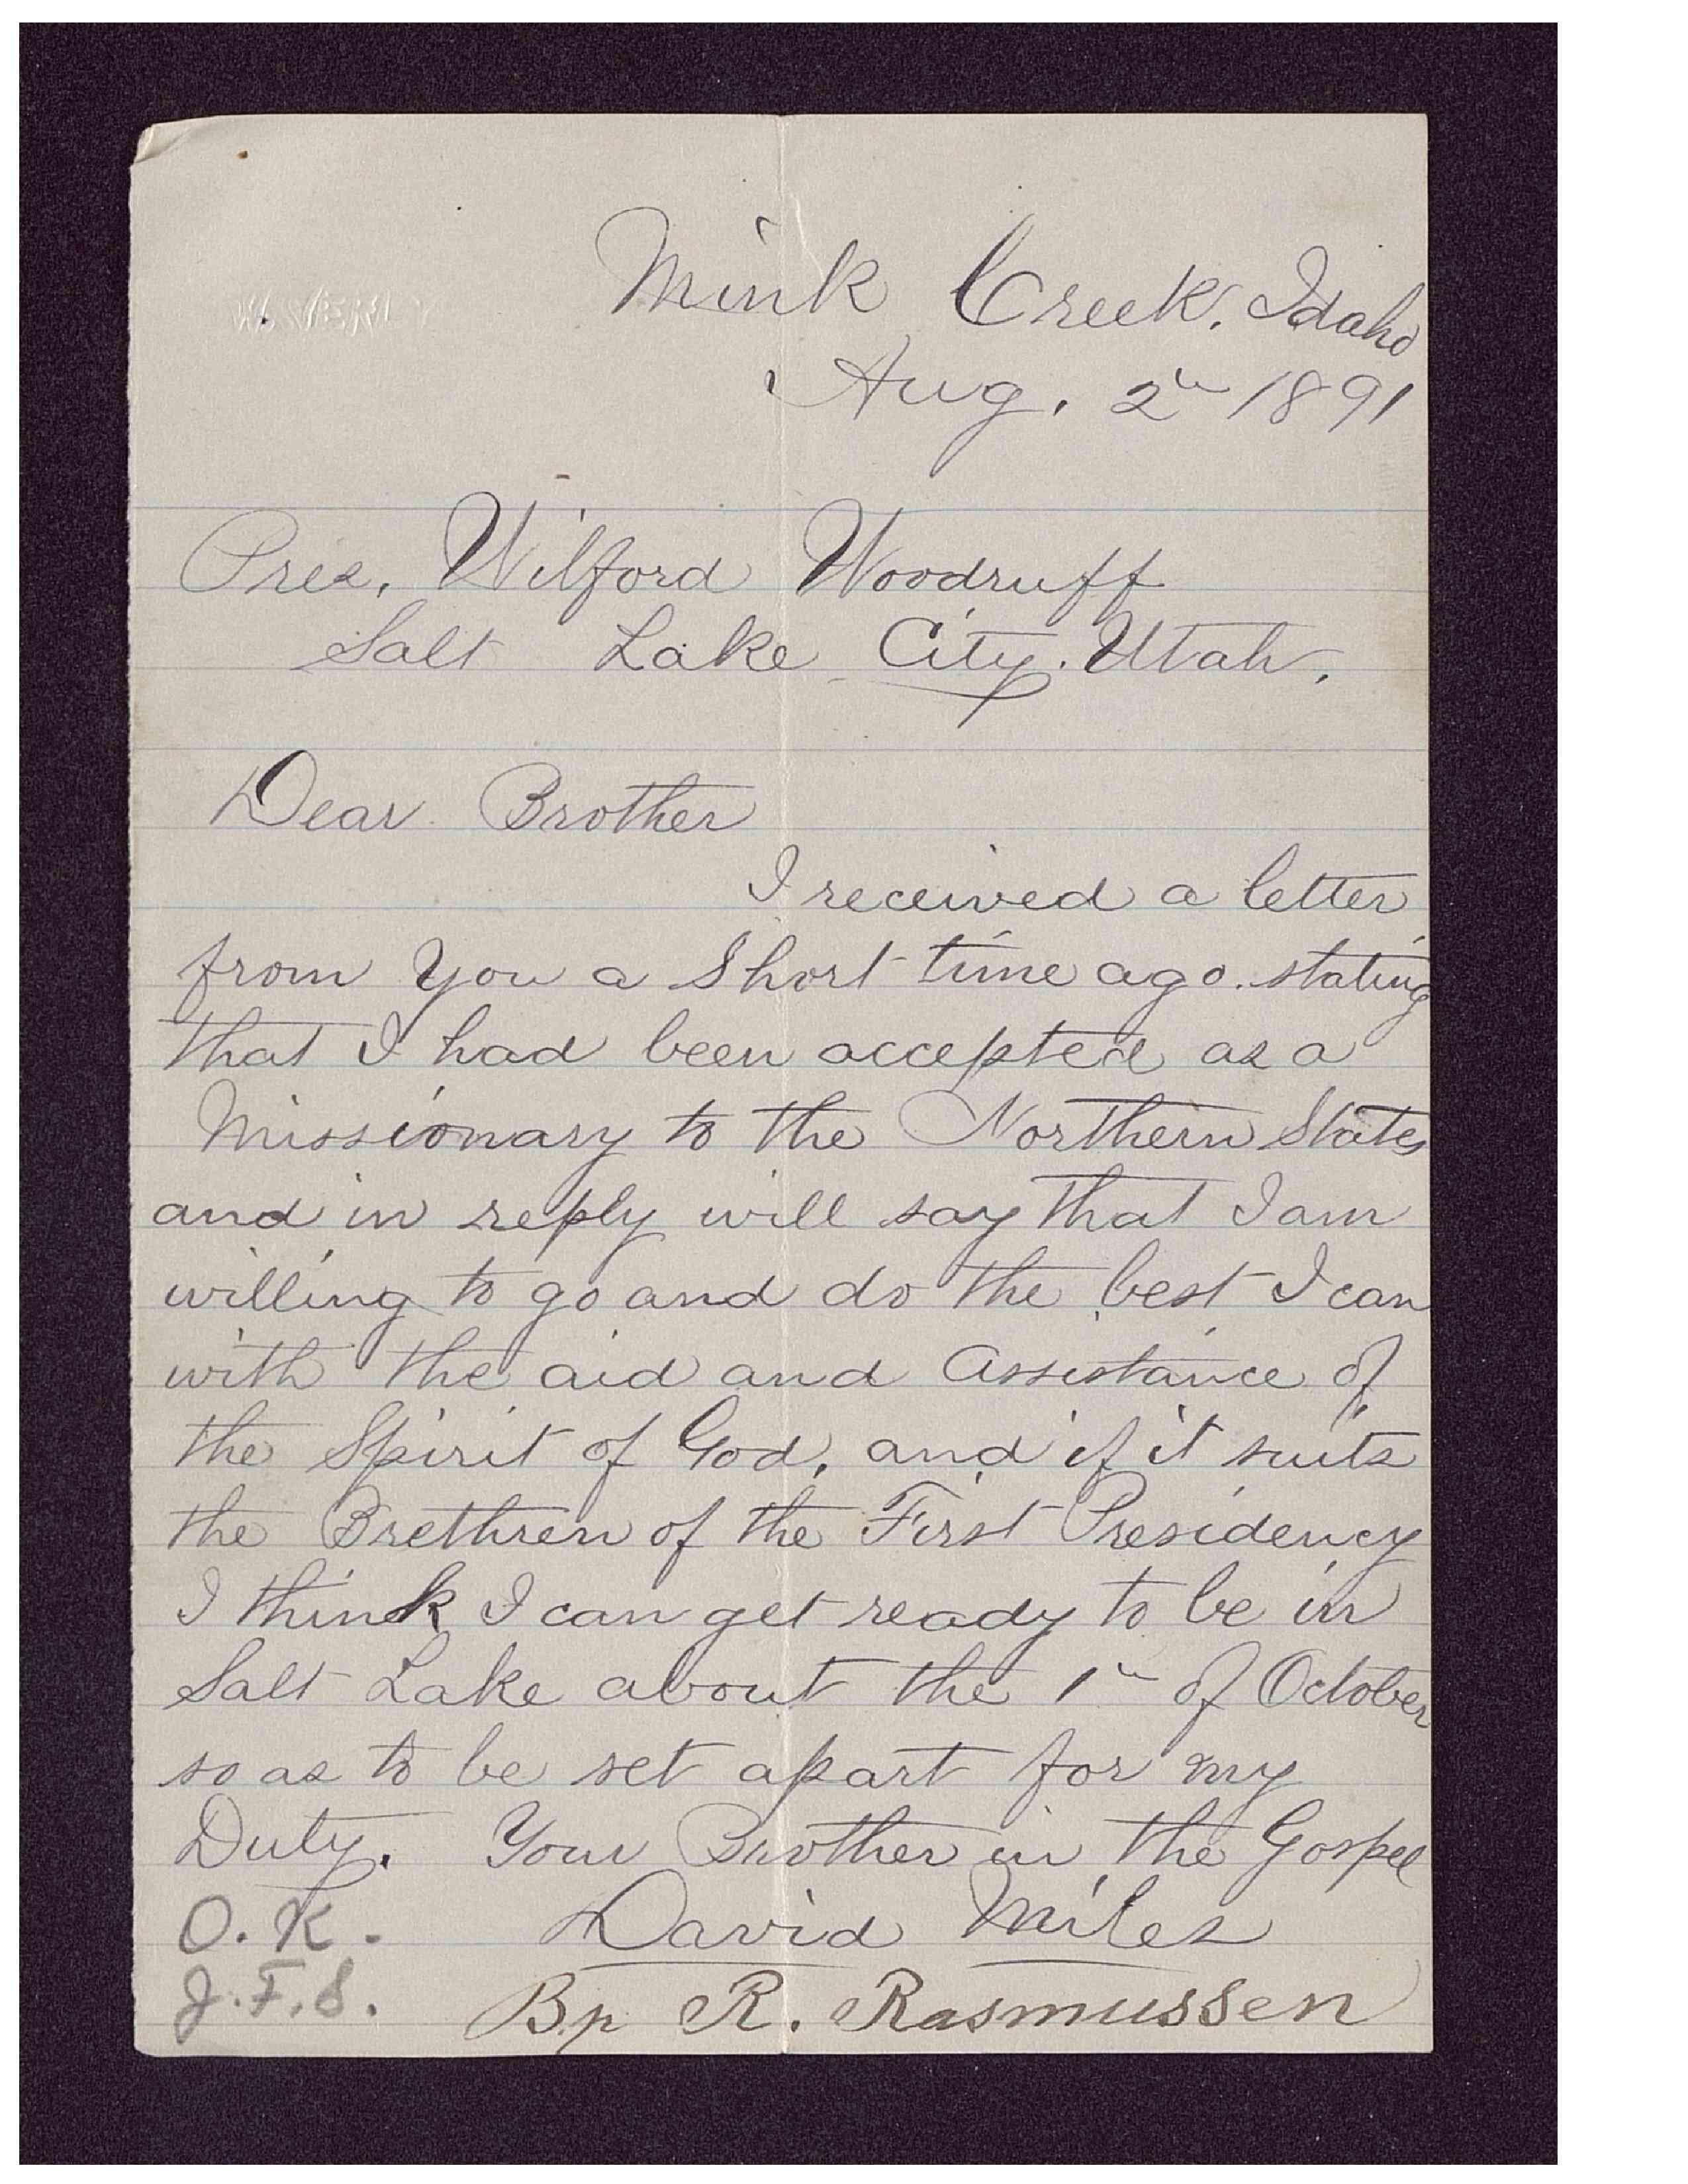 Mink Creek, Idaho
Aug. 2nd 1891
Pres. Wilford Woodruff
Salt Lake City. Utah.
Dear Brother
I received a letter
from You a Short time ago. stating
that I had been accepted as a
Missionary to the Northern States
and in reply will say that I am
willing to go and do the best I can
with the aid and Assistance of
the Spirit of God, and if it suits
the Brethren of the First Presidency
I think I can get ready to be in
Salt Lake about the 1st of October
so as to be set apart for my
Duty. Your Brother in the Gospel
O.K. David Miles
J.F.S. Bp R. Rasmussen